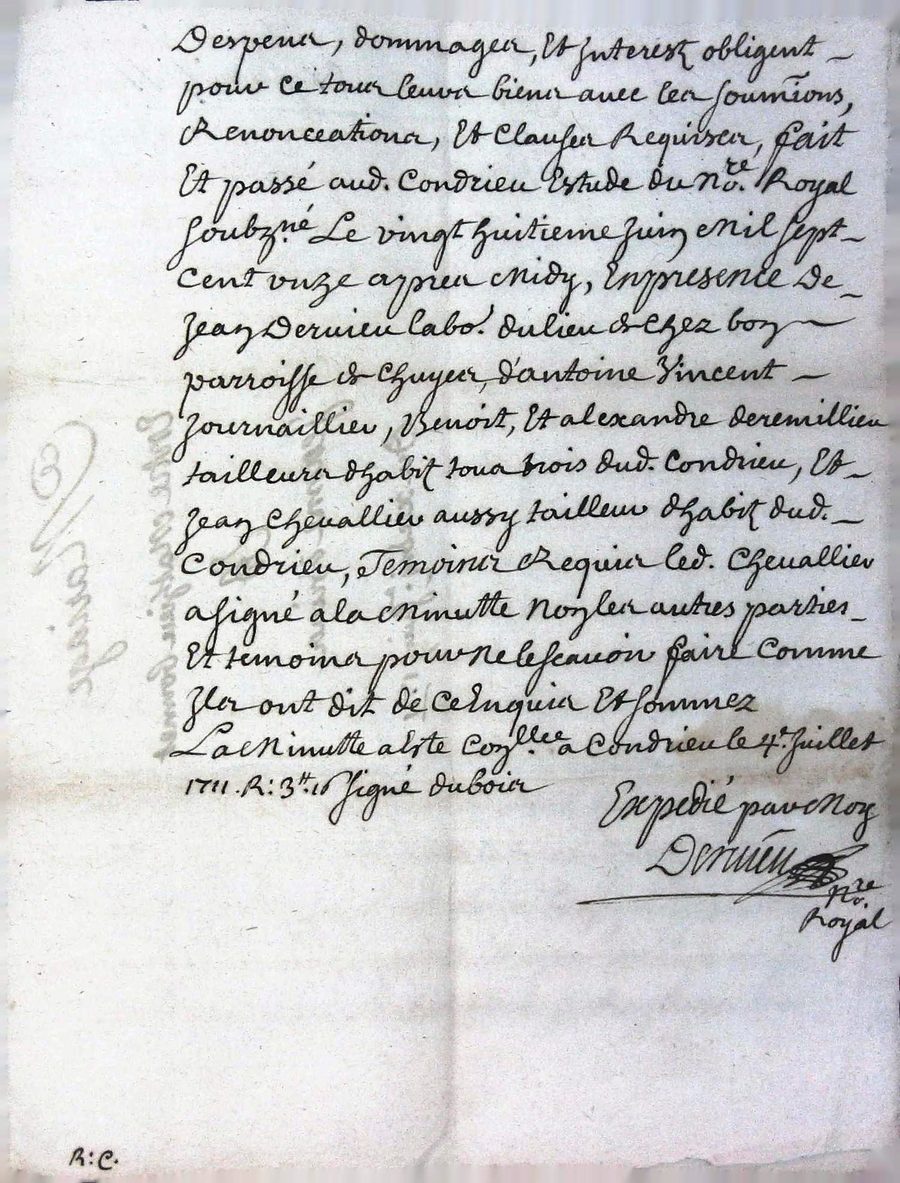 Despens, dommages, Et Interestz obligent
pour ce tous leurs biens avec les soumions,
Renonceations, Et Clauses Requises, fait
Et passé aud. Condrieu Estude du no.re Royal
soubz.né Le vingt huitieme Juin Mil sept
cent unze apres Midy, En presence De
Jean Dervieu labo.r du lieu de Chez bon
parroisse de Chuyes, d'antoine Vincent
Journaillier, Benoit, Et alexandre deremillieu
tailleurs dhabitz tous trois dud. Condrieu, Et
Jean Chevallier aussy tailleur dhabitz dud.
Condrieu, Temoins Requis led. Chevallier
a signé a la Minutte Non les autres parties
Et temoins pour ne le scavoir faire Comme
Ils ont dit de ce Enquis Et sommez
La Minutte a Este con.llee a Condrieu le 4.e Juillet
1711. R: 3.tt 16 signé dubois
Expedié par Moy
Dervieu
no.re
Royal
R: C.